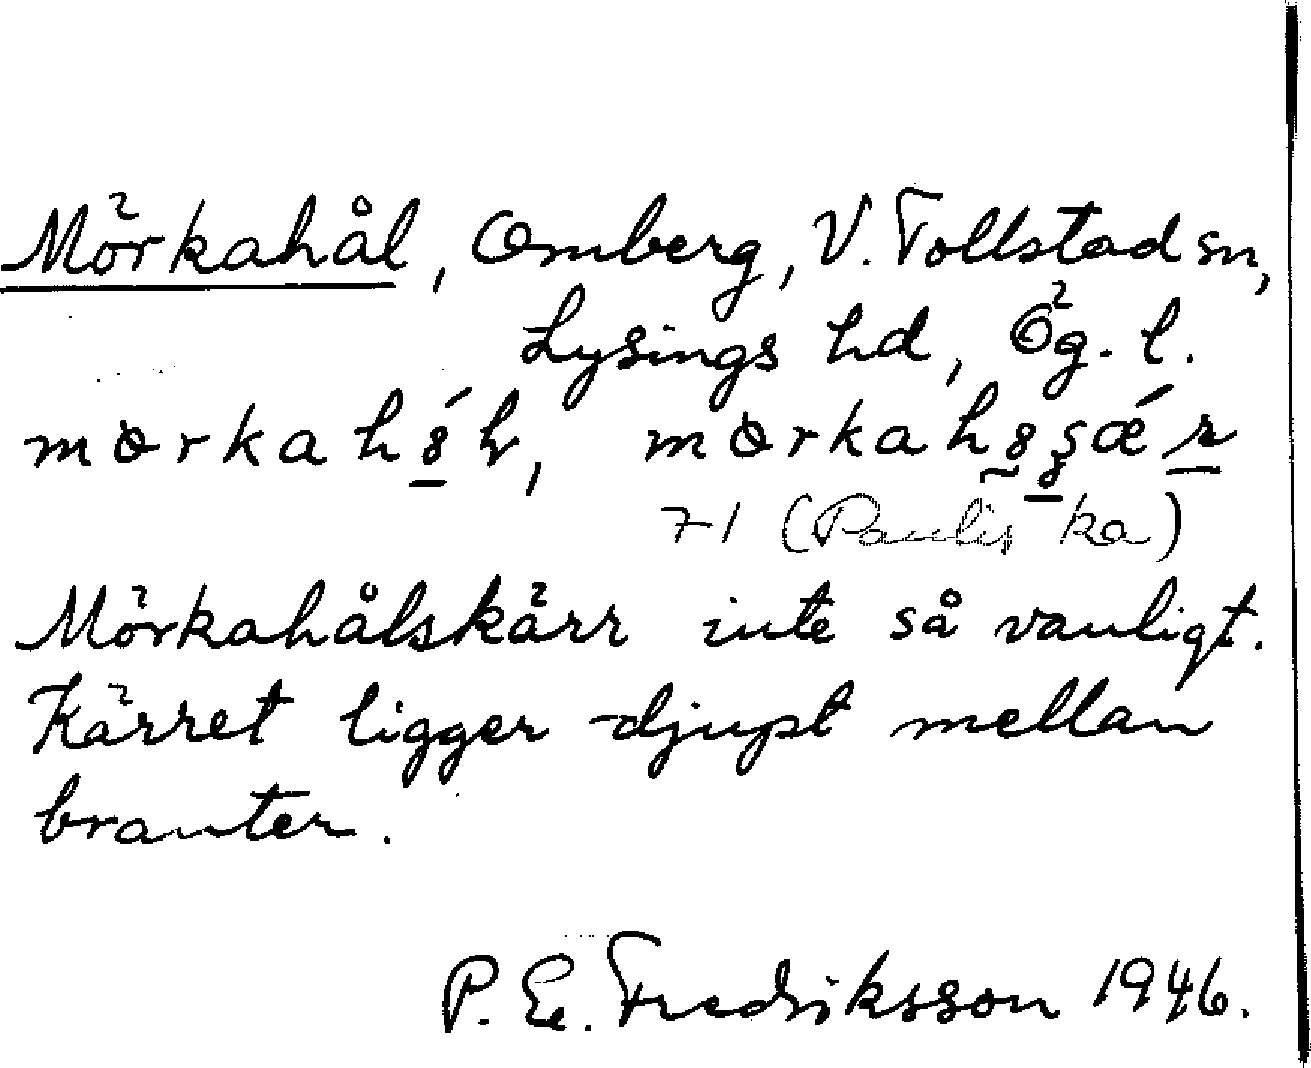 Mörkahål, Omberg, V. Tollstad sn,
Lysings hd, Ög. l.
71 ( ka)
Mörkahålskärr inte så vanligt.
Kärret ligger djupt mellan
branter.
P. E. Fredriksson 1946.